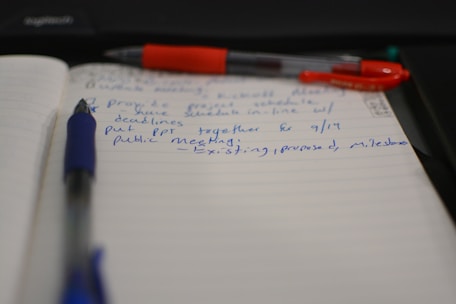 logitech
meeting. - Kickoff Meeting
provide project schedule
- share schedule in-line w/
deadlines
put PPT together for 9/19
public meeting:
- Existing, proposed, milestone